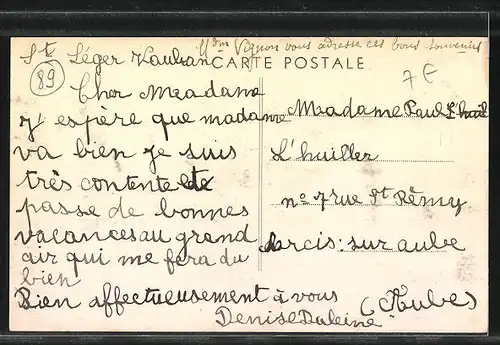 Mdm Pignon vous adresse ces bons souvenirs
St Léger Vauban
CARTE POSTALE
89
7 E
Cher Meadame
J' espère que madame
va bien je suis
très contente de
passe de bonnes
vacances au grand
air qui me fera du
bien
Bien affectueusement à vous
Denise Daleine
Meadame Paul L'huil
L'huiller
no 7 rue St Rémy
Arcis: sur aube
(Aube)